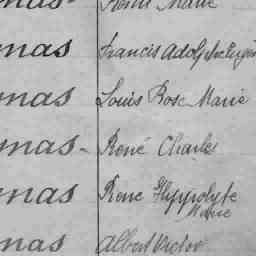 mas Francis Adolphe Eugèn
mas Louis Rose Marie
mas- René Charles
mas Rene Hyppolyte
Marie
mas Albert Victor